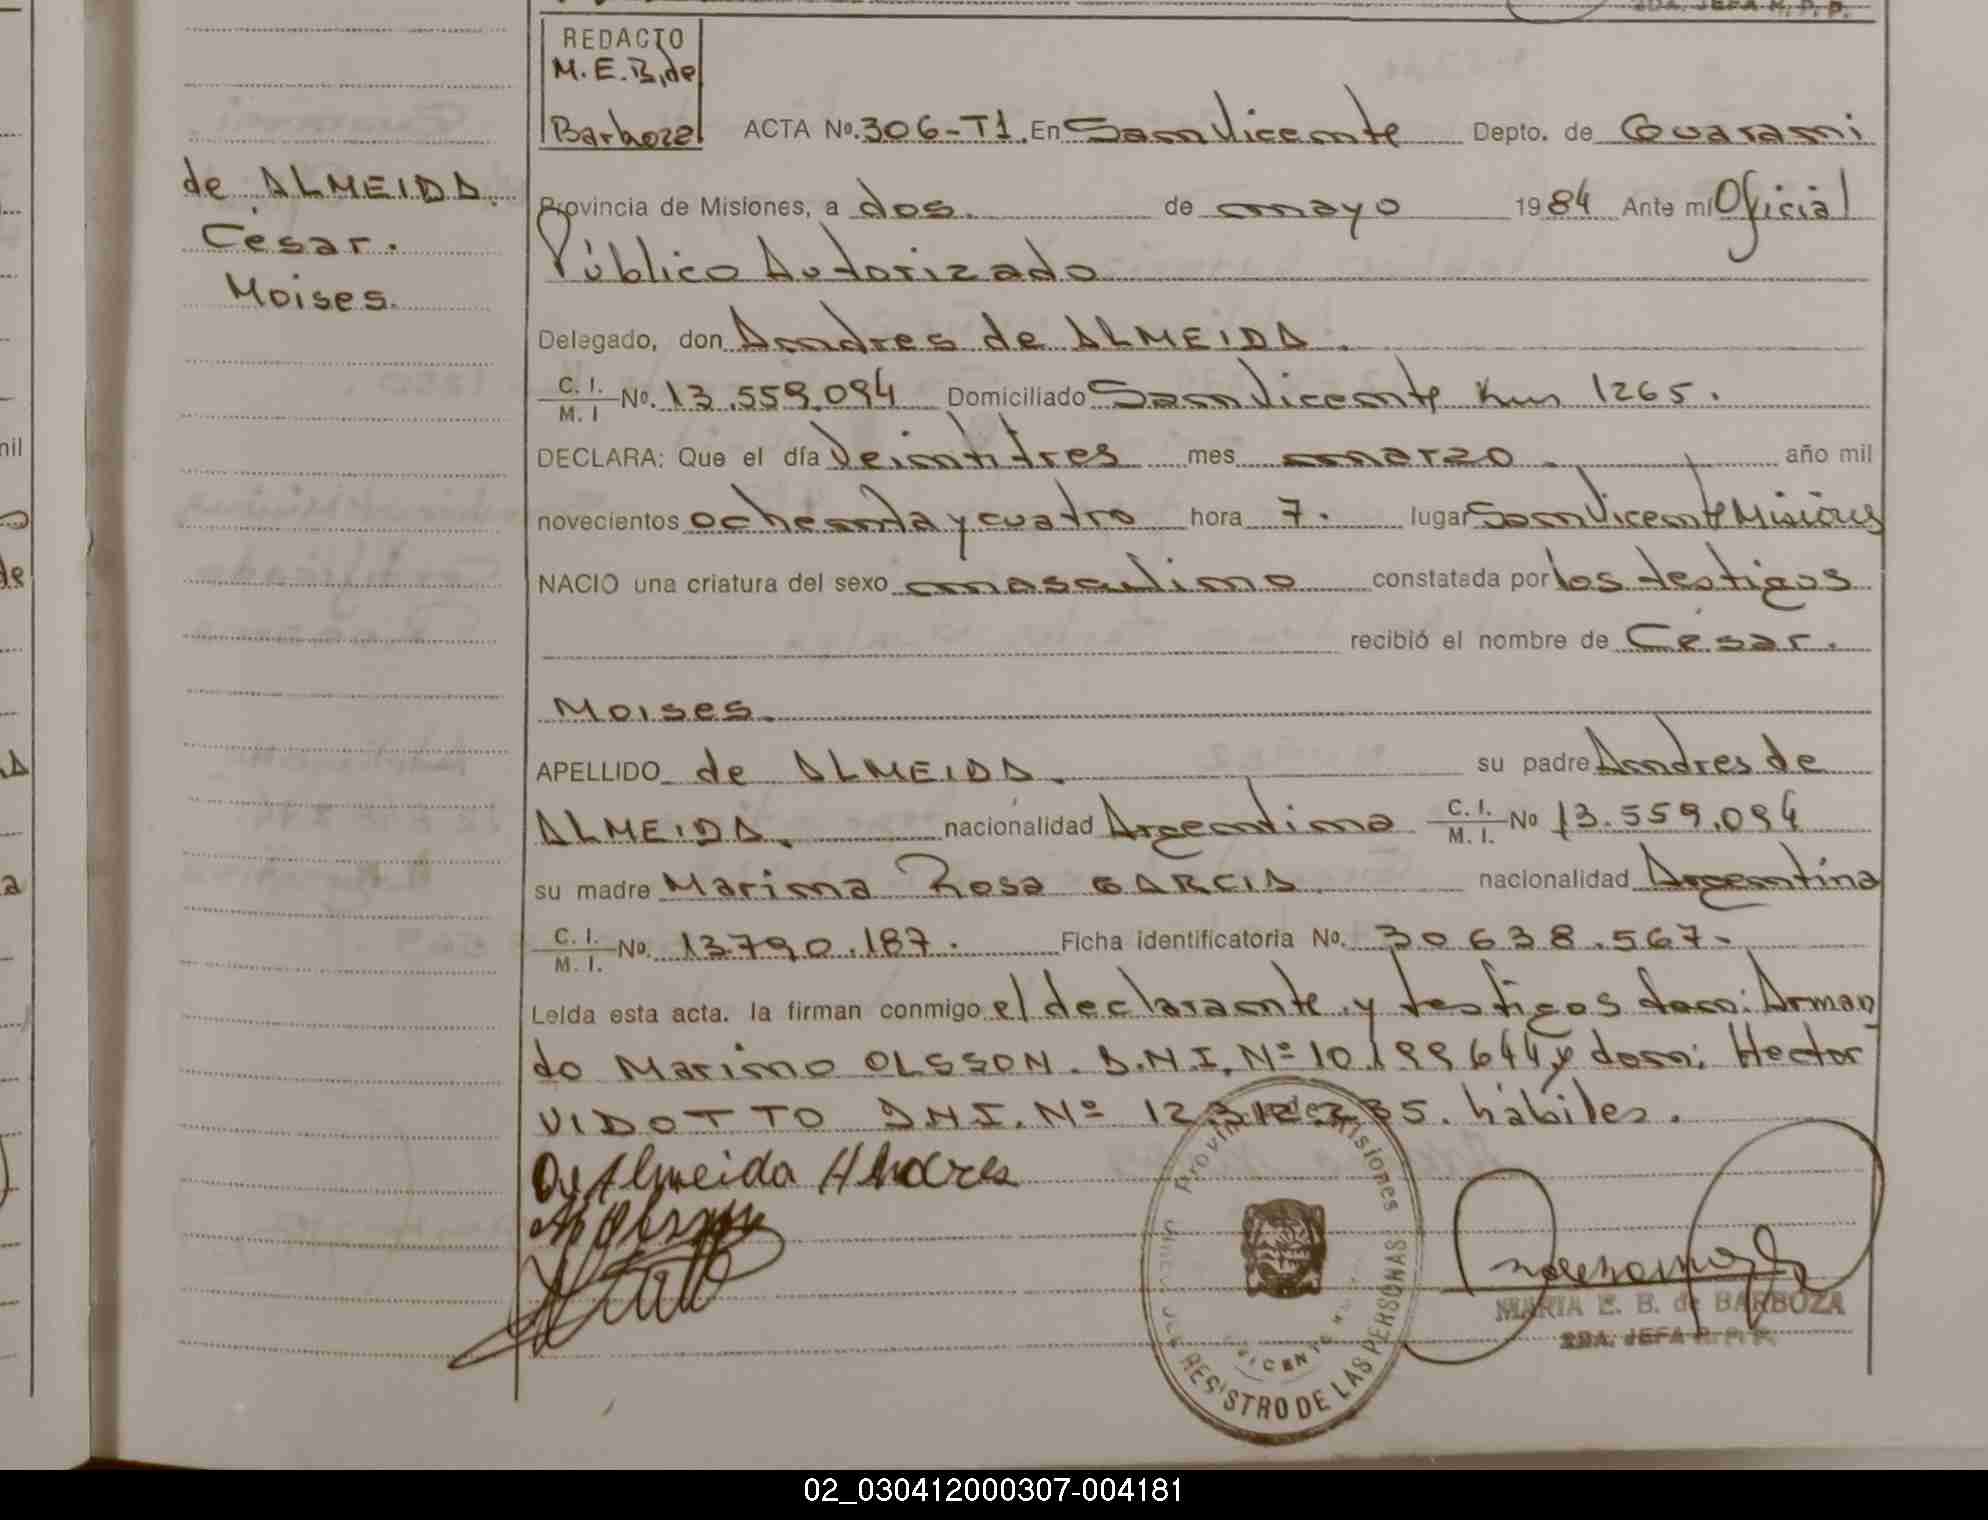 2DA. JEFA R. P. P.
REDACTO
M.E.B, de
Barboza
de ALMEIDA.
César.
Moises.
ACTA No. 306-T1. En San Vicente Depto. de Guarani
Provincia de Misiones, a dos. de mayo 1984 Ante mí Oficial
Público Autorizado
Delegado, don Andres de ALMEIDA.
C. I. / M. I No. 13.559.094 Domiciliado San Vicente km 1265.
DECLARA: Que el día Veintitres mes marzo. año mil
novecientos ochenta y cuatro hora 7. lugar San Vicente Misiones
NACIO una criatura del sexo masculino constatada por los testigos
recibió el nombre de César.
Moises.
APELLIDO de ALMEIDA. su padre Andres de
ALMEIDA. nacionalidad Argentina C. I. / M. I. No 13.559.094
su madre Marina Rosa GARCIA nacionalidad Argentina
C. I. / M. I. No. 13.790.187. Ficha identificatoria No. 30638.567.
Leída esta acta. la firman conmigo el declarante y testigos don: Arman
do Marino OLSSON. D.N.I. Nº 10.199.644 y don: Hector
VIDOTTO D.N.I. Nº 12.312.335. hábiles.
De Almeida Andres
Provincia de Misiones
REGISTRO DE LAS PERSONAS
MARIA E. B. de BARBOZA
2DA. JEFA R. P. P.
02_030412000307-004181